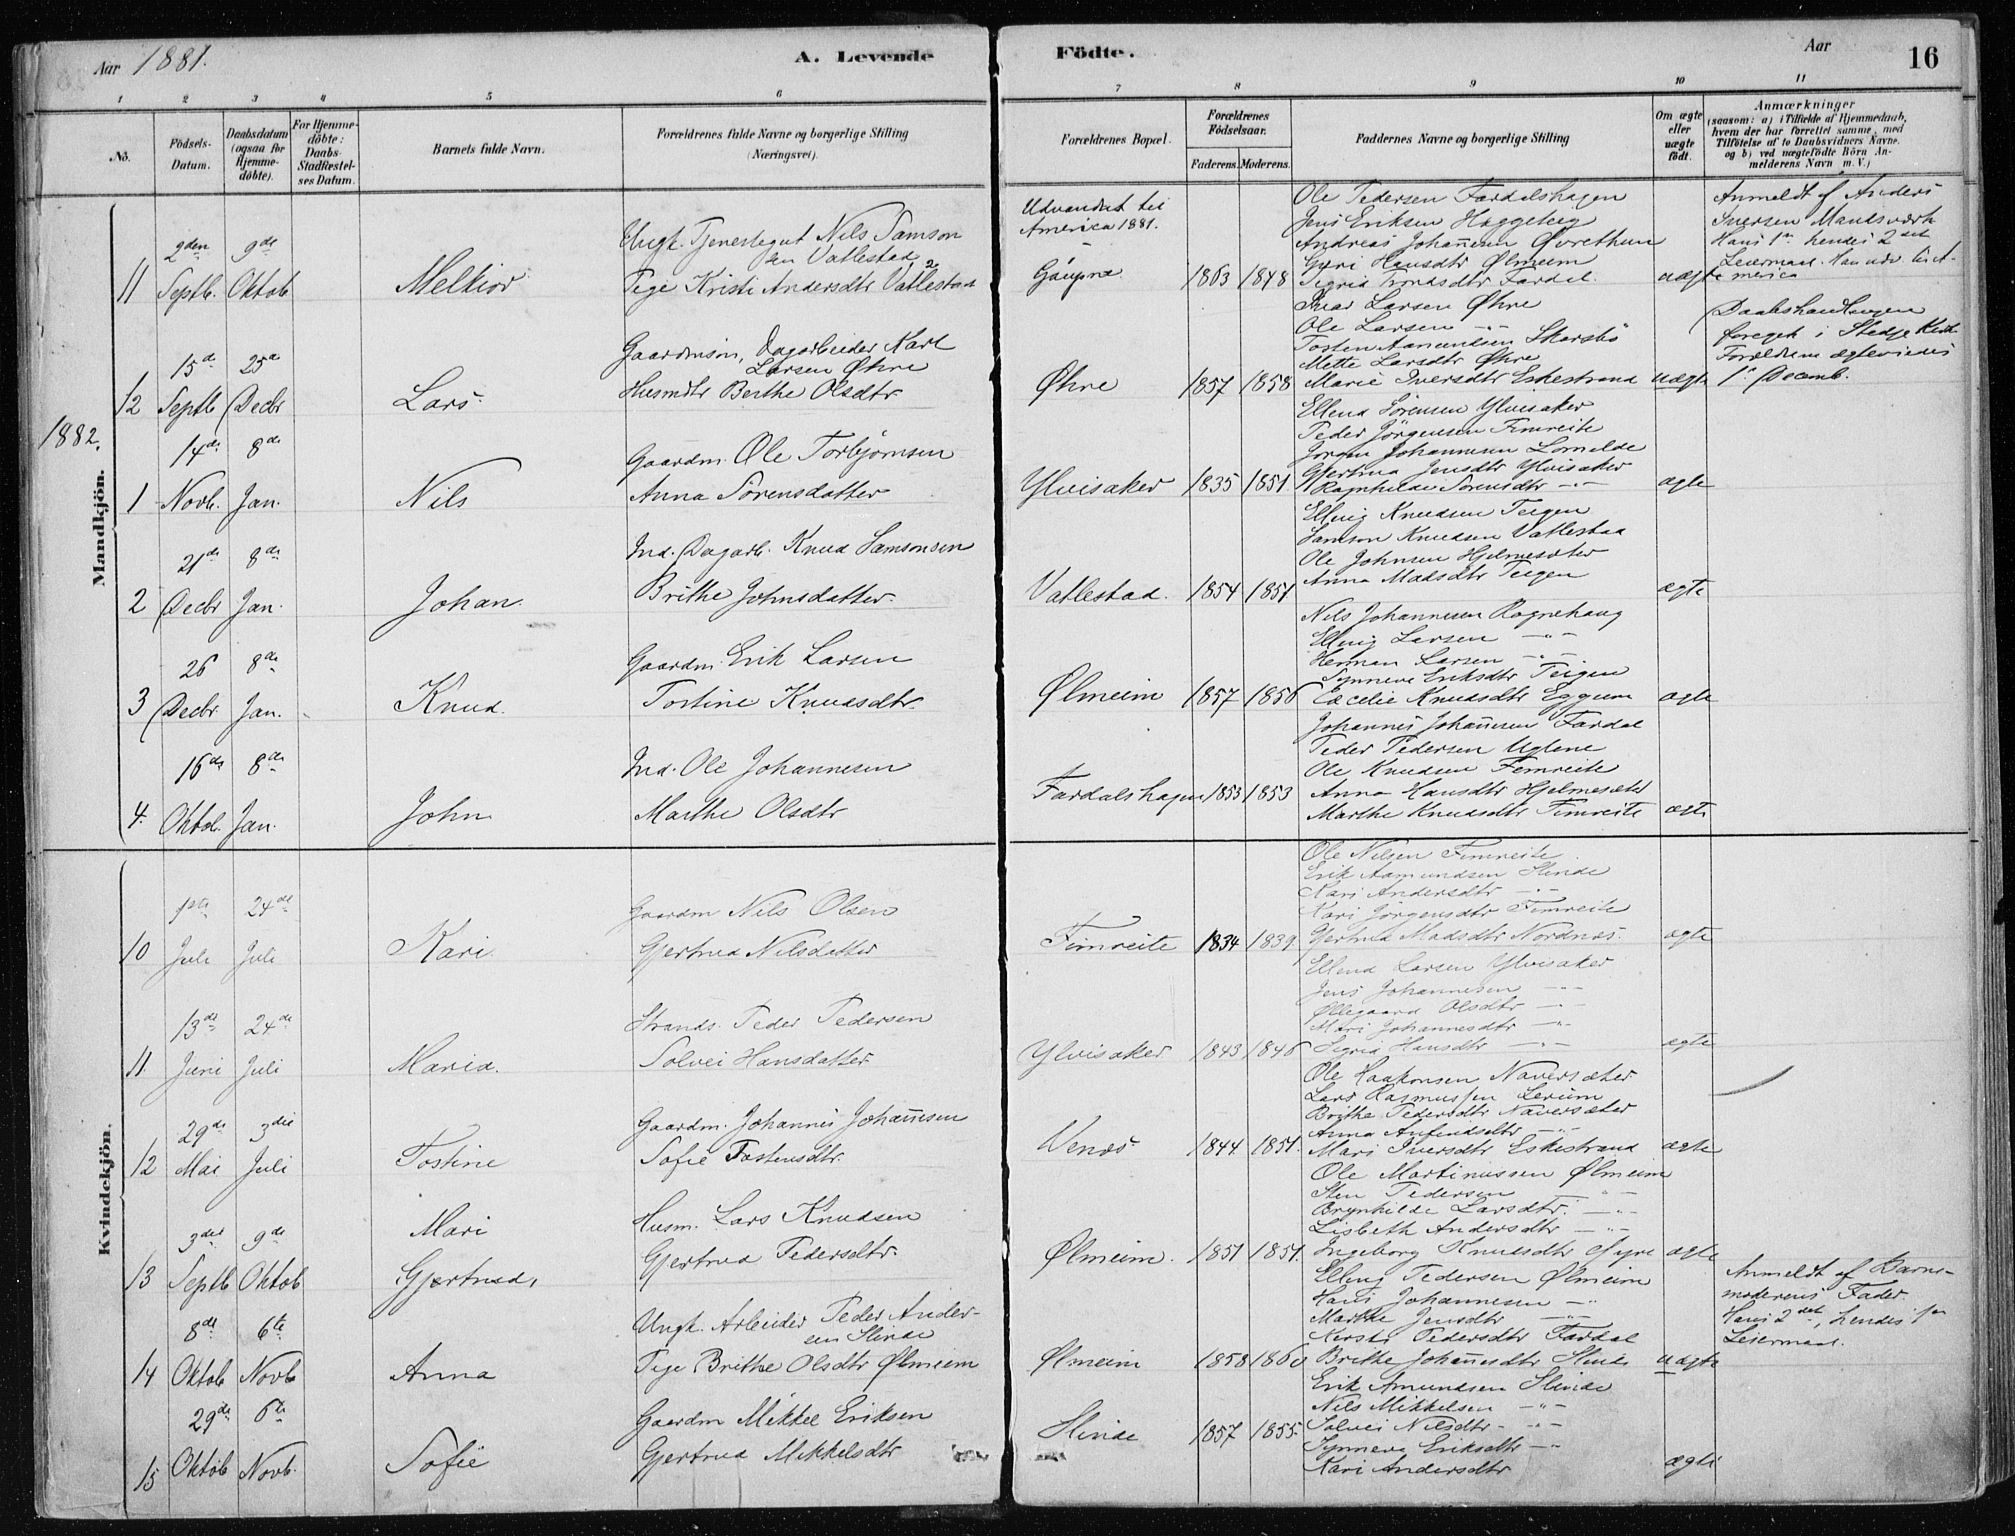 Aar 1881.
A. Levende
Födte.
Aar
16
1 2 3 4 5 6 7 8 9 10 11
No.
Födsels-Datum.
Daabsdatum (ogsaa for Hjemme-döbte).
For Hjemme-döbte: Daabs-Stadfæstel-ses Datum.
Barnets fulde Navn.
Forældrenes fulde Navne og borgerlige Stilling (Næringsvei).
Forældrenes Bopæl.
Forældrenes Födselsaar.
Faderens. Moderens.
Faddernes Navne og borgerlige Stilling
Om ægte eller uægte födt.
Anmærkninger
(saasom: a) i Tilfælde af Hjemmedaab,
hvem der har forrettet samme, med
Tilföielse af to Daabsvidners Navne.
og b) ved uægtefödte Börn An-
melderens Navn m. V.)
Mandkjön.
11 2den Septb. 9de Oktob
Melkior
Ungk. Tjenestegut Nils Samson
sen Vatlestad
Pige Kristi Andersdtr Vatlestad
Udvandret til
America 1881.
Gaupne 1863 1848
Ole Pedersen Fardalshagen
Jens Eriksen Haggeberg
Andreas Johannesen Øvrethun
Guri Hansdtr Ølmeim
Sigrid Fardal.
uægte
Anmeldt af Anders
Iversen Mandsverk
Hans 1ste hendes 2det
Leiermaal. Han udv. til A-
merica
12 15de Septb 25de Decbr
Lars.
Gaardmsøn, Dagarbeider Karl
Larsen Øhre
Husmdtr Berthe Olsdtr
Øhre 1857 1858
Ivar Larsen Øhre
Ole Larsen -"-
Tosten Aamundsen Skarsbö
Mette Larsdtr Øhre
Marie Iversdtr Eskestrand
uægte
Daabshandlingen
foregik i Stedje Kirk
Forældrene ægteviedes
1ste Decemb.
1882.
1 14de Novb. 8de Jan.
Nils
Gaardm. Ole Torbjörnsen
Anna Sörensdatter
Ylvisaker 1835 1851
Ellend Sörensen Ylvisaker
Peder Jörgensen Fimreite
Jörgen Johannesen Lomelde
Gjertrud Jensdtr Ylvisaker
Ragnhilde Sörensdtr -"-
ægte
2 21de Decbr 8de Jan.
Johan.
Ind. Dagarb. Knud Samsonsen
Brithe Johnsdatter.
Vatlestad. 1854 1851
Elling Knudsen Teigen
Samson Knudsen Vatlestad
Ole Johnsen Hjelmesæter
Anna Madsdtr Teigen
ægte
3 26 Decbr 8de Jan.
Knud.
Gaardm. Erik Larsen
Tostine Knudsdtr.
Ølmeim 1857 1856
Nils Johannesen Rognehaug
Elling Larsen -"-
Herman Larsen -"-
Synneve Eriksdtr Teigen
Cæcelie Knudsdtr Eggum
ægte
4. 16de Oktob. 8de Jan.
John
Ind. Ole Johannesen
Marthe Olsdtr
Fardalshagen 1853 1853
Johannes Johannesen Fardal
Peder Pedersen Uglene
Ole Knudsen Fimreite
Anna Hansdtr Hjelmesæter
Marthe Knudsdtr Fimreite
ægte
Kvindekjön.
10 1ste Juli 24de Juli
Kari.
Gaardm Nils Olsen
Gjertrud Nilsdatter
Fimreite 1834 1839.
Ole Nilsen Fimreite
Erik Aamundsen Slinde
Kari Andersdtr -"-
Kari Jörgensdtr Fimreite
Gjertrud Madsdtr Nordnæs.
ægte
11 13de Juni 24de Juli
Maria.
Strands. Peder Pedersen
Solvei Hansdatter
Ylvisaker 1843 1846
Ellend Larsen Ylvisaker
Jens Johannesen -"-
Øllegaard Olsdtr -"-
Mari Johannesdtr -"-
Sigrid Hansdtr -"-
ægte
12 29de Mai 3die Juli
Tostine
Gaardm. Johannes Johannesen
Sofie Tostensdtr.
Venæs 1844 1851.
Ole Haakonsen Naversæter
Lars Rasmussen Lerum
Brithe Pedersdtr Naversæter
Anna Anfindsdtr -"-
Mari Iversdtr Eskestrand
ægte
13 3die Septb 9de Oktob
Mari
Gjertrud,
Husm. Lars Knudsen
Gjertrud Pedersdtr.
Ølmeim. 1851 1851.
Ole Martinussen Ølmeim
Sten Pedersen -"-
Brynhilde Larsdtr. -"-
Lisbeth Andersdtr -"-
Ingeborg Knudsdtr Gyre
ægte
14 8de Oktob 6te Novb
Anna
Ungk. Arbeider Peder Ander-
sen Slinde
Pige Brithe Olsdtr Ølmeim
Ølmeim 1858 1860
Elling Pedersen Ølmeim
Hans Johannesen -"-
Marthe Jensdtr -"-
Kersti Pedersdtr Fardal
Brithe Johannesdtr Slinde
uægte
Anmeldt af Barne-
moderens Fader.
Hans 2det, hendes 1ste
Leiermaal.
15 29de Oktob 6te Novb.
Sofie
Gaardm Mikkel Eriksen
Gjertrud Mikkelsdtr
Slinde 1857 1855.
Erik Amundsen Slinde
Nils Mikkelsen -"-
Solvei Nilsdtr- -"-
Synneve Eriksdtr -"-
Kari Andersdtr
ægte